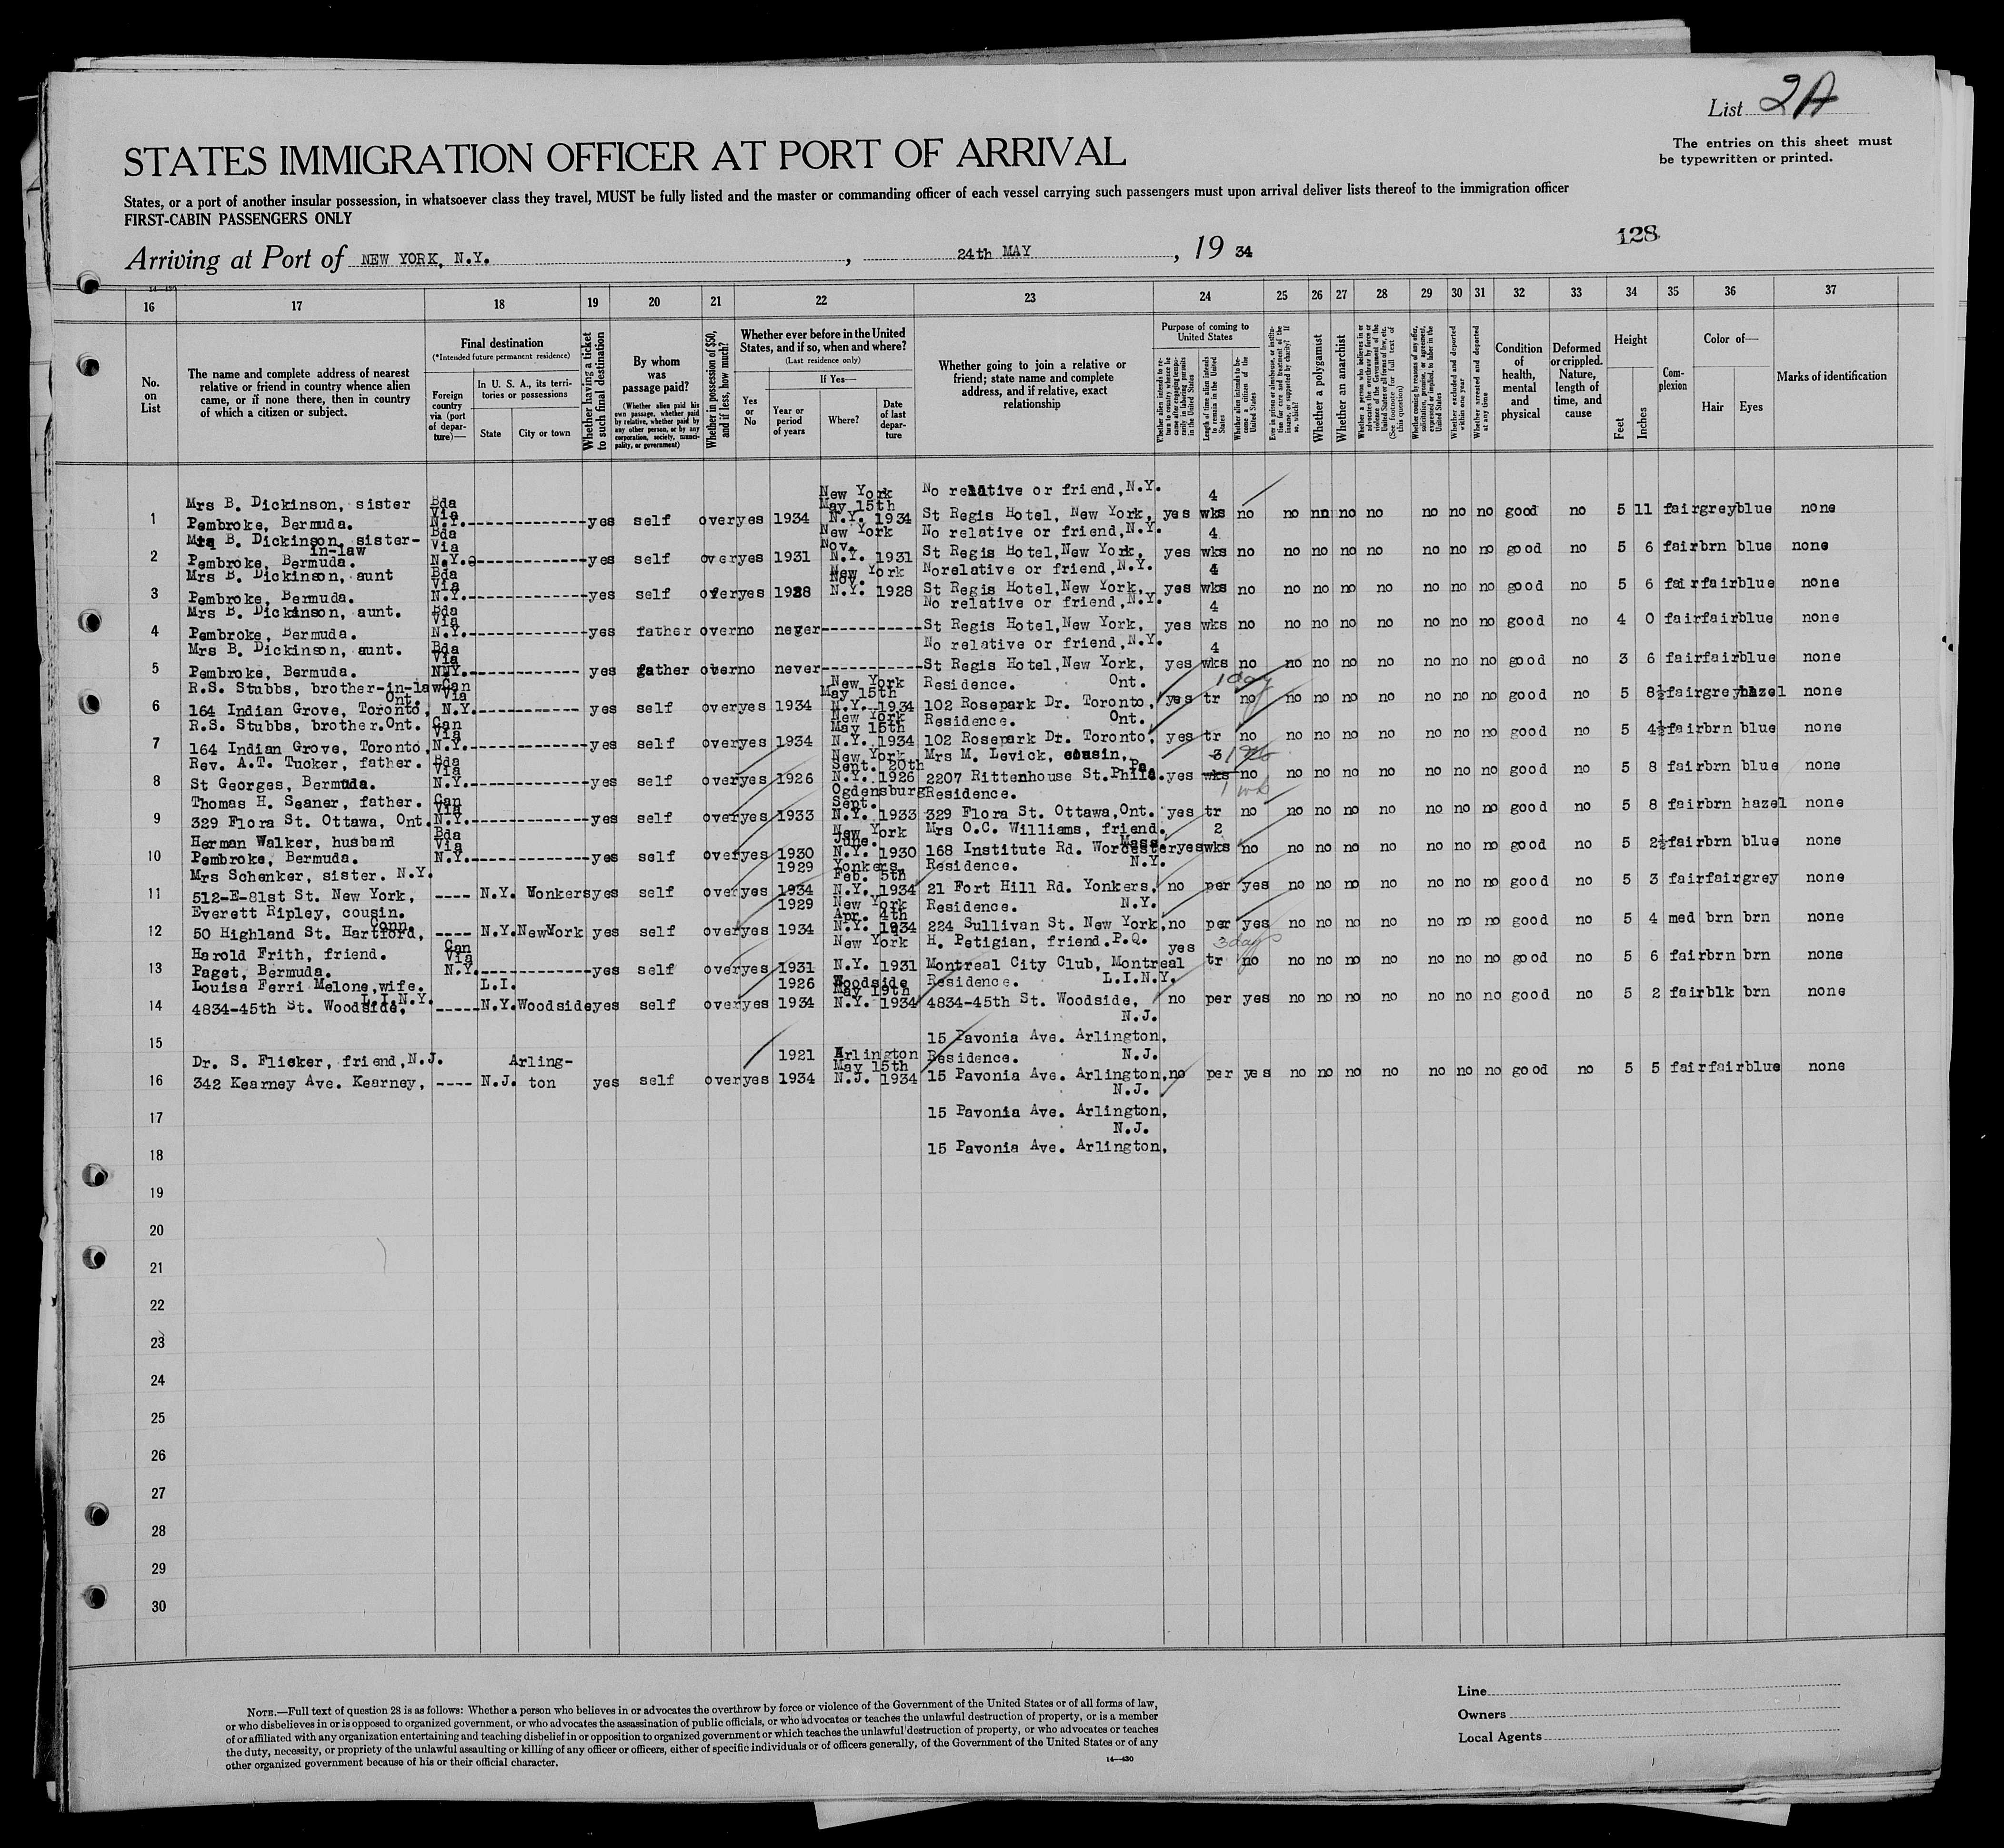 List 2A
The entries on this sheet must
be typewritten or printed.
STATES IMMIGRATION OFFICER AT PORT OF ARRIVAL
States, or a port of another insular possession, in whatsoever class they travel, MUST be fully listed and the master or commanding officer of each vessel carrying such passengers must upon arrival deliver lists thereof to the immigration officer
FIRST-CABIN PASSENGERS ONLY
128
Arriving at Port of NEW YORK, N.Y., 24th MAY, 19 34
16 17 18 19 20 21 22 23 24 25 26 27 28 29 30 31 32 33 34 35 36 37
No. on List
The name and complete address of nearest relative or friend in country whence alien came, or if none there, then in country of which a citizen or subject.
Final destination
(*Intended future permanent residence)
Foreign country via (port of departure)—
In U. S. A., its territories or possessions
State
City or town
Whether having a ticket to such final destination
By whom was passage paid?
(Whether alien paid his own passage, whether paid by relative, whether paid by any other person, or by any corporation, society, municipality, or government)
Whether in possession of $50, and if less, how much?
Whether ever before in the United States, and if so, when and where?
(Last residence only)
Yes or No
If Yes—
Year or period of years
Where?
Date of last departure
Whether going to join a relative or friend; state name and complete address, and if relative, exact relationship
Purpose of coming to United States
Whether alien intends to return to country whence he came after engaging temporarily in laboring pursuits in the United States
Length of time alien intends to remain in the United States
Whether alien intends to become a citizen of the United States
Ever in prison or almshouse, or institution for care and treatment of the insane, or supported by charity? If so, which?
Whether a polygamist
Whether an anarchist
Whether a person who believes in or advocates the overthrow by force or violence of the Government of the United States or all forms of law, etc. (See footnote for full text of this question)
Whether coming by reason of any offer, solicitation, promise, or agreement, expressed or implied, to labor in the United States
Whether excluded and deported within one year
Whether arrested and deported at any time
Condition of health, mental and physical
Deformed or crippled. Nature, length of time, and cause
Height
Feet
Inches
Complexion
Color of—
Hair
Eyes
Marks of identification
Mrs B. Dickinson, sister Bda Via New York May 15th No relative or friend, N.Y. 4
1 Pembroke, Bermuda. N.Y.------------yes self over yes 1934 N.Y. 1934 St Regis Hotel, New York, yes wks no no nn no no no no no good no 5 11 fair grey blue none
B. Dickinson, sister-in-law Bda Via New York Nov. No relative or friend, N.Y. 4
2 Pembroke, Bermuda. N.Y.------------yes self over yes 1931 N.Y. 1931 St Regis Hotel, New York, yes wks no no no no no no no no good no 5 6 fair brn blue none
Mrs B. Dickinson, aunt Bda Via New York Nov. No relative or friend, N.Y. 4
3 Pembroke, Bermuda. N.Y.------------yes self over yes 1928 N.Y. 1928 St Regis Hotel, New York, yes wks no no no no no no no no good no 5 6 fair fair blue none
Mrs B. Dickinson, aunt. Bda Via No relative or friend, N.Y. 4
4 Pembroke, Bermuda. N.Y.------------yes father over no never-----------St Regis Hotel, New York, yes wks no no no no no no no no good no 4 0 fair fair blue none
Mrs B. Dickinson, aunt. Bda Via No relative or friend, N.Y. 4
5 Pembroke, Bermuda. N.Y.------------ yes father over no never-----------St Regis Hotel, New York, yes wks no no no no no no no no good no 3 6 fair fair blue none
R.S. Stubbs, brother-in-law Can Via New York May 15th Residence. Ont. 1 day
6 164 Indian Grove, Toronto, Ont. N.Y.------------ yes self over yes 1934 N.Y. 1934 102 Rosepark Dr. Toronto, yes tr no no no no no no no no good no 5 8½ fair grey hazel none
R.S. Stubbs, brother. Ont. Can Via New York May 15th Residence. Ont.
7 164 Indian Grove, Toronto, N.Y.------------yes self over yes 1934 N.Y. 1934 102 Rosepark Dr. Toronto, yes tr no no no no no no no no good no 5 4½ fair brn blue none
Rev. A.T. Tucker, father. Bda Via New York Sept. 20th Mrs M. Levick, cousin, Pa. 3
8 St Georges, Bermuda. N.Y.------------yes self over yes 1926 N.Y. 1926 2207 Rittenhouse St. Phila. yes wks no no no no no no no no good no 5 8 fair brn blue none
Thomas H. Seaner, father. Can Via Ogdensburg Sept. Residence. 1 wk
9 329 Flora St. Ottawa, Ont. N.Y.------------yes self over yes 1933 N.Y. 1933 329 Flora St. Ottawa, Ont. yes tr no no no no no no no no good no 5 8 fair brn hazel none
Herman Walker, husband Bda Via New York June. Mrs O.C. Williams, friend. 2
10 Pembroke, Bermuda. N.Y.------------yes self over yes 1930 N.Y. 1930 168 Institute Rd. Worcester Mass yes wks no no no no no no no no good no 5 2½ fair brn blue none
Mrs Schenker, sister. N.Y. 1929 Yonkers, Feb. 5th Residence. N.Y.
11 512-E-81st St. New York, ---- N.Y. Yonkers yes self over yes 1934 N.Y. 1934 21 Fort Hill Rd. Yonkers, no per yes no no no no no no no good no 5 3 fair fair grey none
Everett Ripley, cousin. 1929 New York Apr. 4th Residence. N.Y.
12 50 Highland St. Hartford, Conn. ---- N.Y. New York yes self over yes 1934 N.Y. 1934 224 Sullivan St. New York, no per yes no no no no no no no good no 5 4 med brn brn none
Harold Frith, friend. Can Via New York H. Petigian, friend. P.Q. 3 days
13 Paget, Bermuda. N.Y.------------yes self over yes 1931 N.Y. 1931 Montreal City Club, Montreal yes tr no no no no no no no no good no 5 6 fair brn brn none
Louisa Ferri Melone, wife. L.I. 1926 Woodside May 19th Residence. L.I.N.Y.
14 4834-45th St. Woodside, L.I.N.Y. -----N.Y. Woodside yes self over yes 1934 N.Y. 1934 4834-45th St. Woodside, no per yes no no no no no no no good no 5 2 fair blk brn none
N.J.
15 15 Pavonia Ave. Arlington,
Dr. S. Flicker, friend, N.J. Arling- 1921 Arlington May 15th Residence. N.J.
16 342 Kearney Ave. Kearney, ---- N.J. ton yes self over yes 1934 N.J. 1934 15 Pavonia Ave. Arlington, no per yes no no no no no no no good no 5 5 fair fair blue none
N.J.
17 15 Pavonia Ave. Arlington,
N.J.
18 15 Pavonia Ave. Arlington,
19
20
21
22
23
24
25
26
27
28
29
30
NOTE.—Full text of question 28 is as follows: Whether a person who believes in or advocates the overthrow by force or violence of the Government of the United States or of all forms of law,
or who disbelieves in or is opposed to organized government, or who advocates the assassination of public officials, or who advocates or teaches the unlawful destruction of property, or is a member
of or affiliated with any organization entertaining and teaching disbelief in or opposition to organized government or which teaches the unlawful destruction of property, or who advocates or teaches
the duty, necessity, or propriety of the unlawful assaulting or killing of any officer or officers, either of specific individuals or of officers generally, of the Government of the United States or of any
other organized government because of his or their official character.
14—430
Line
Owners
Local Agents